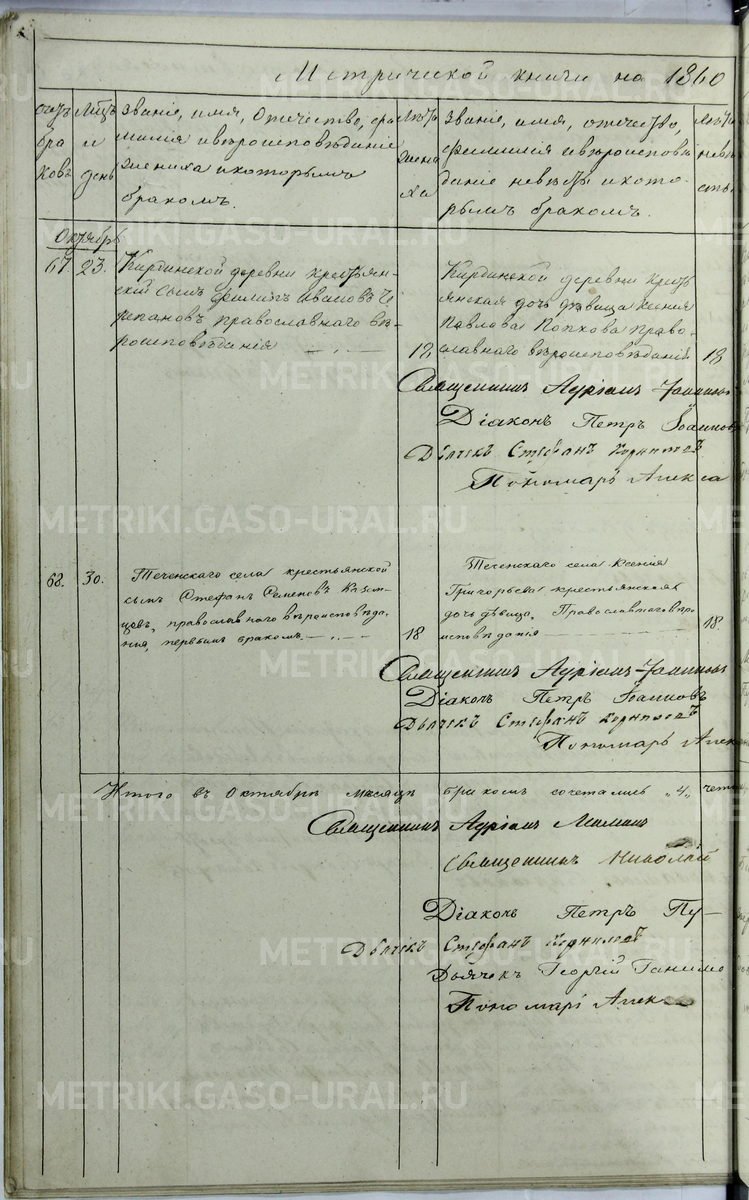 Метрической книги на 1860
Счетъ браковъ
Мѣсяцъ и день
Званіе, имя, отчество, фа-
милія и вѣроисповѣданіе
жениха и которымъ
бракомъ.
Лѣта
жени
ха
Званіе, имя, отечество,
фамилія и вѣроисповѣ
даніе невѣсты и кото-
рымъ бракомъ.
Лѣта
невѣ
сты
Октябрь
67 23.
Кирдинской деревни крестьян-
скій сынъ Филипъ Ивановъ
православнаго вѣ-
роисповѣданія
18
Кирдинской деревни крест
янская дочь дѣвица Ксенія
Павлова право-
славнаго вѣроисповѣданія
18
Священникъ Адріанъ
Діаконъ Петръ
Дьячекъ Стефанъ
Пономарь Алекса
68. 30.
Теченскаго села крестьянской
сынъ Стефанъ Семеновъ Казан-
цовъ, православного вѣроисповѣда-
нія, первымъ бракомъ.
18
Теченскаго села Ксенія
Григорьева крестьянская
дочь дѣвица. Православного вѣро
исповѣданія
18.
Священникъ Адріанъ
Діаконъ Петръ
Дьячекъ Стефанъ
Пономарь Алек
Итого въ Октябрѣ мѣсяцѣ бракомъ сочетались „4„ четы
Священникъ Адріанъ
Священникъ Николай
Діаконъ Петръ Пу-
Дьячекъ Стефанъ
Дьячекъ Георгій
Пономарь Алек
METRIKI.GASO-URAL.RU